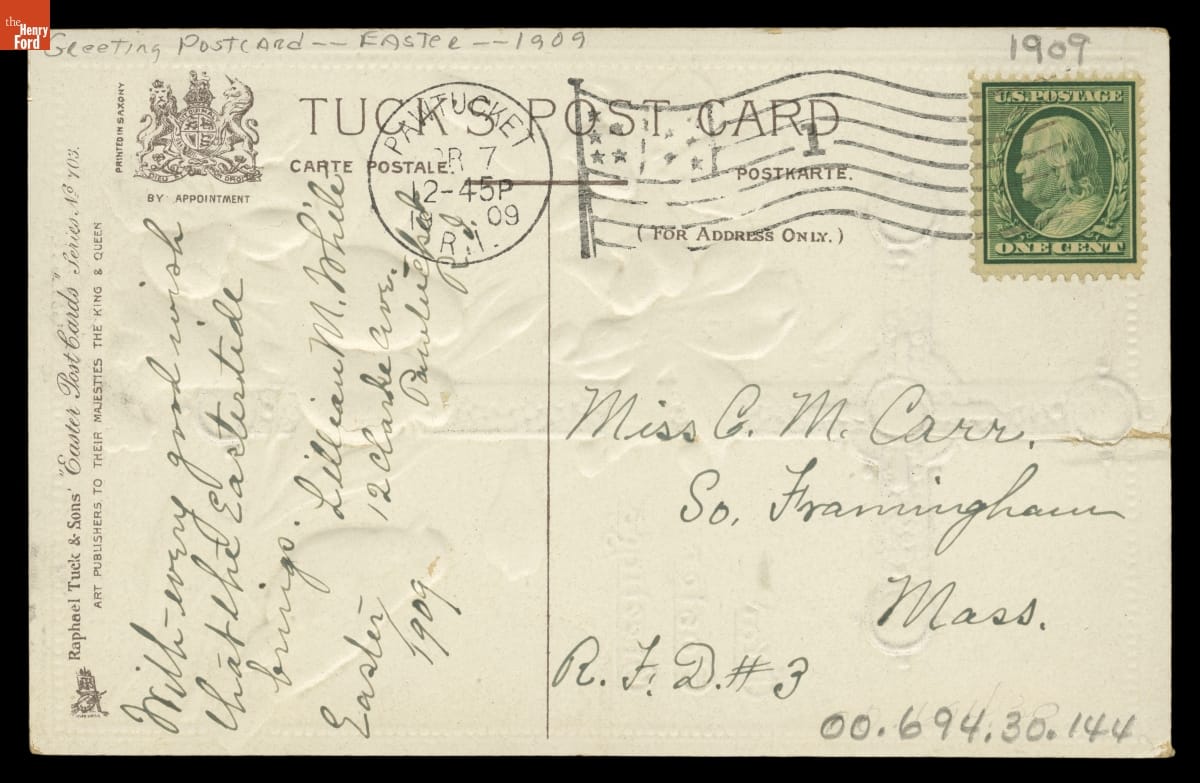 the
Henry
Ford
Greeting Postcard -- Easter -- 1909
1909
TUCK'S POST CARD
CARTE POSTALE.
POSTKARTE.
(FOR ADDRESS ONLY.)
PRINTED IN SAXONY
BY APPOINTMENT
PAWTUCKET
PR 7
12-45P
09
R.I.
1
U.S. POSTAGE
ONE CENT
Raphael Tuck & Sons' "Easter Post Cards" Series No 703.
ART PUBLISHERS TO THEIR MAJESTIES THE KING & QUEEN
With every good wish
that the Eastertide
brings.
Lillian M. White
12 Clarke Ave.
Pawtucket
R.I.
Easter
1909
Miss C. M. Carr.
So. Framingham
Mass.
R. F. D. # 3
00.694.30.144